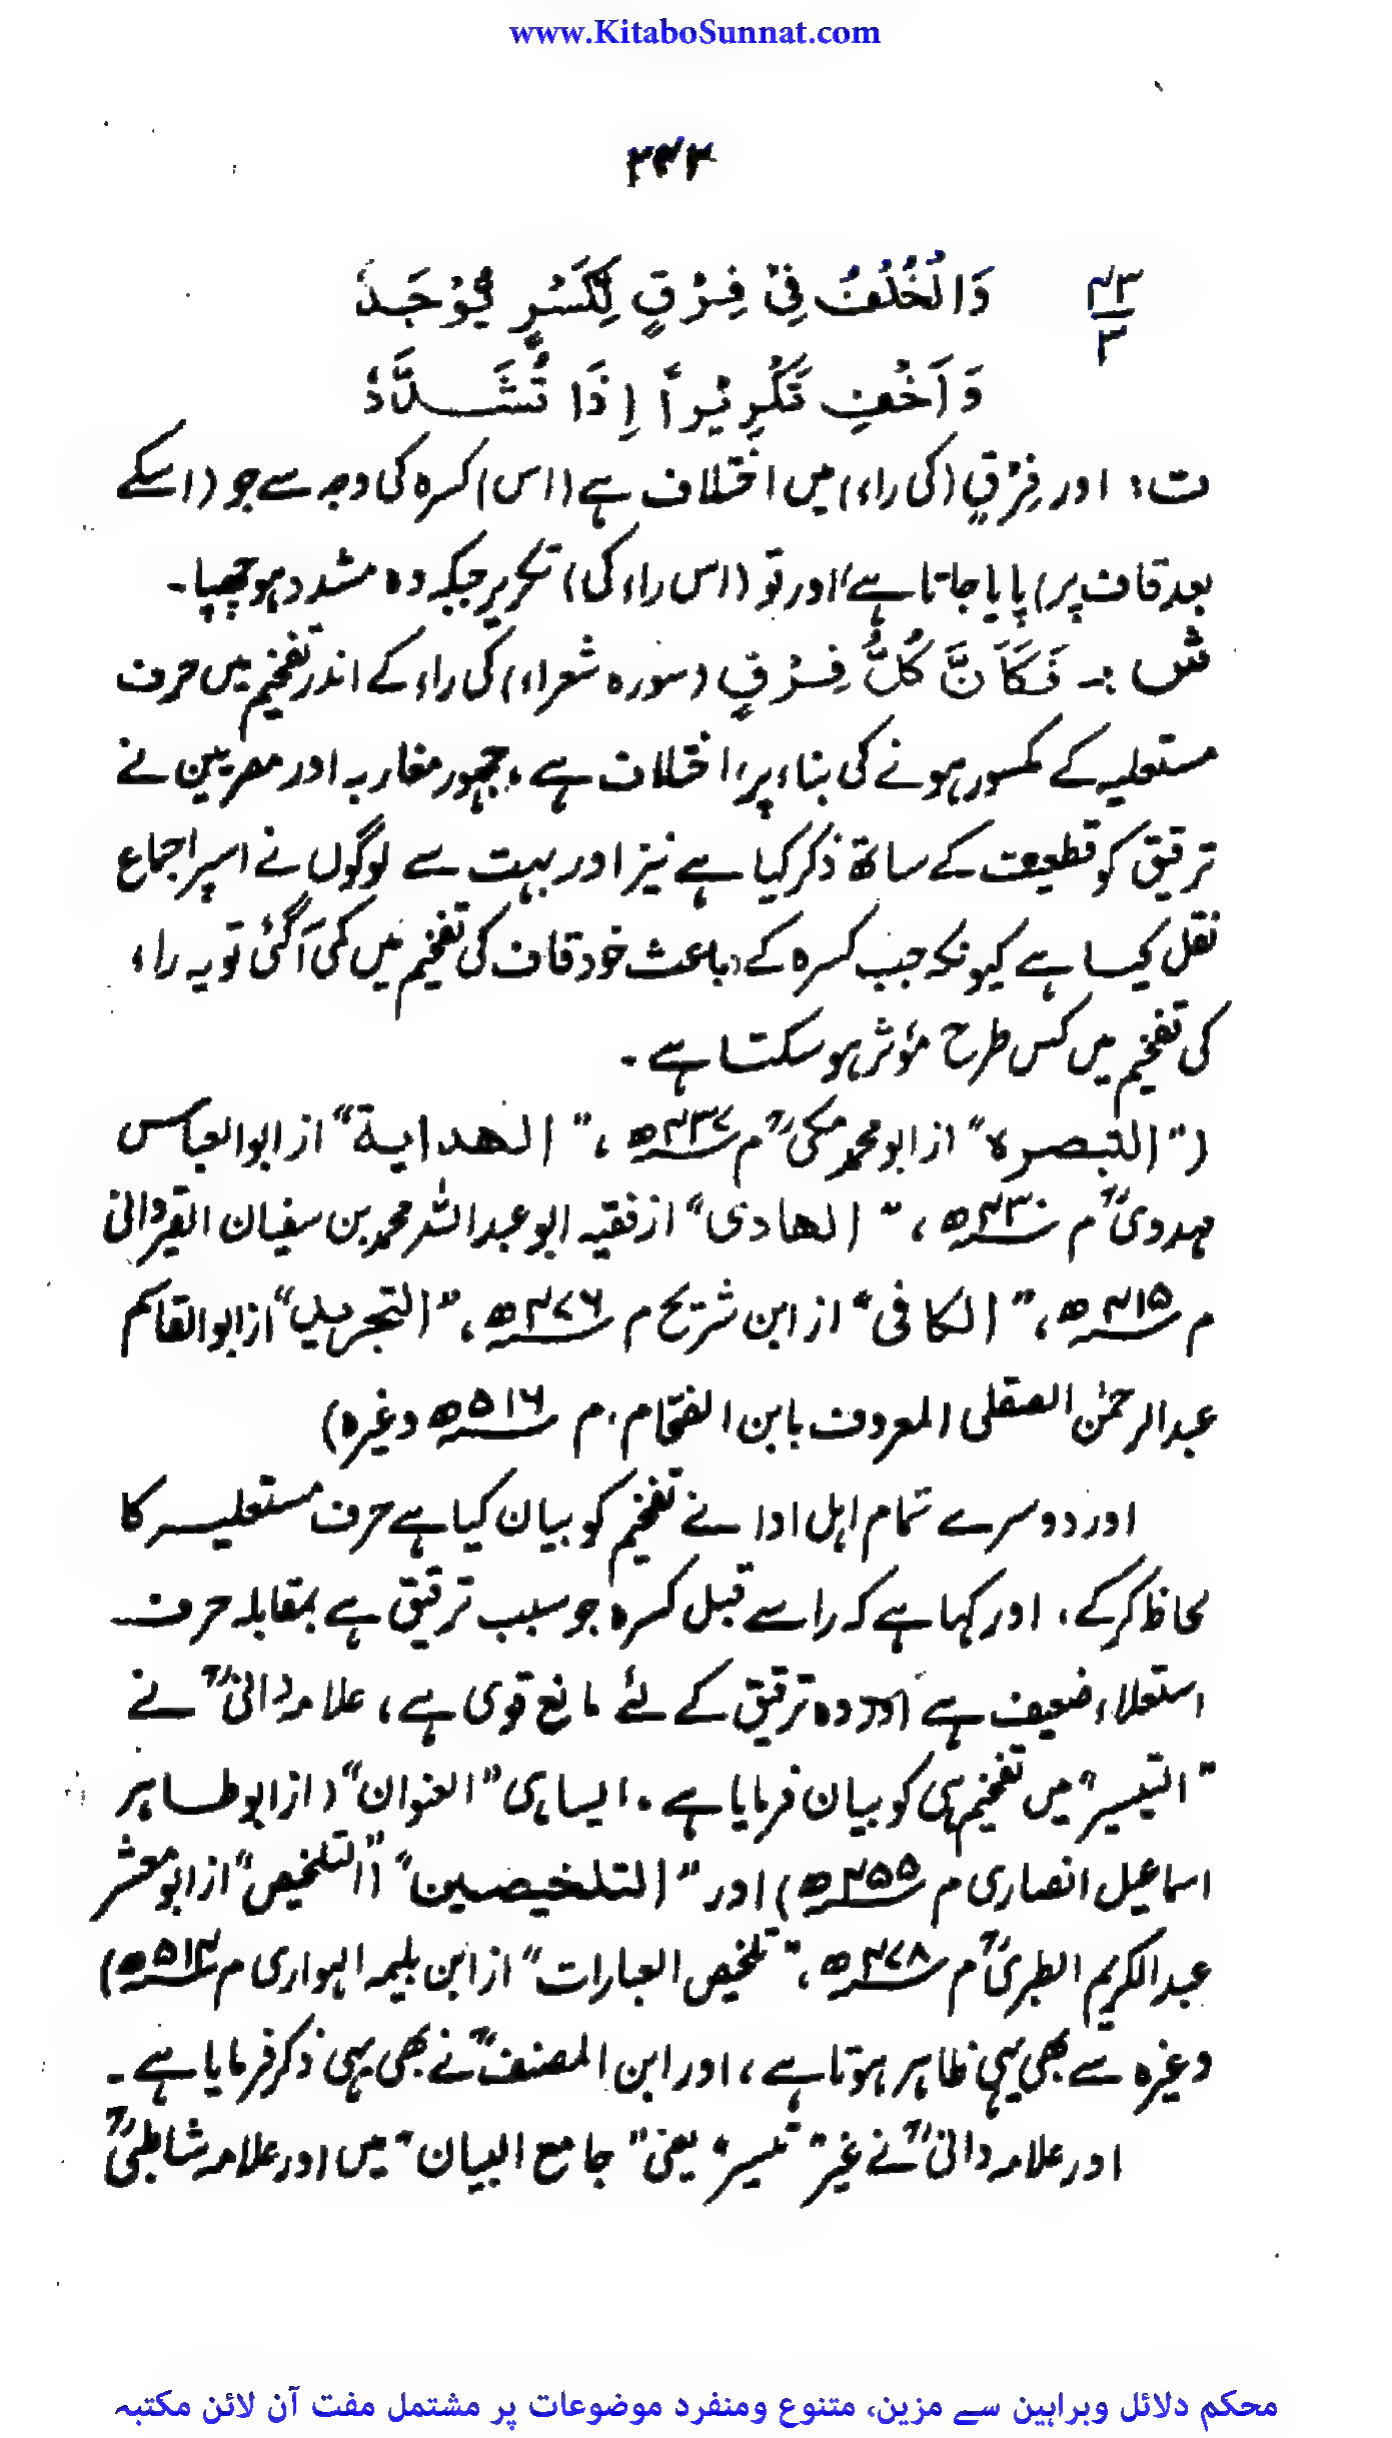 www.KitaboSunnat.com
۲۴۳
۴۳
۳
وَالْخُلْفُ فِیْ فِرْقٍ لِکَسْرٍ یُّوْجَدُ
وَاَخْفِ تَکْرِیْراً اِذَا تُشَدَّدُ
ت: اور فِرْقٍ (کی راء) میں اختلاف ہے (اس) کسرہ کی وجہ سے جو (اسکے
بعد قاف پر) پایا جاتا ہے، اور تو (اس راء کی) تکریر جبکہ وہ مشدد ہو چھپا۔
ش :۔ فَکَانَ کُلُّ فِرْقٍ (سورہ شعراء) کی راء کے اندر تفخیم میں حرف
مستعلیہ کے مکسور ہونے کی بناء پر، اختلاف ہے، جمہور مغاربہ اور مصریین نے
ترقیق کو قطعیت کے ساتھ ذکر کیا ہے نیز اور بہت سے لوگوں نے اسپر اجماع
نقل کیا ہے کیونکہ جب کسرہ کے باعث خود قاف کی تفخیم میں کمی آگئی تو یہ راء
کی تفخیم میں کس طرح مؤثر ہو سکتا ہے۔
("التبصرہ" از ابو محمد مکیؒ م ۴۳۷ھ، "الھدایة" از ابو العباس
مہدویؒ م ۴۳۰ھ، "الھادی" از فقیہ ابو عبداللہ محمد بن سفیان القیروانی
م ۴۱۵ھ، "الکافی" از ابن شریح م ۴۷۶ھ، "التجرید" از ابو القاسم
عبدالرحمٰن الصقلی المعروف بابن الفحّام، م ۵۱۶ھ وغیرہ)
اور دوسرے تمام اہل ادا نے تفخیم کو بیان کیا ہے حرف مستعلیہ کا
لحاظ کرکے، اور کہا ہے کہ را سے قبل کسرہ جو سبب ترقیق ہے بمقابلہ حرف
استعلاء ضعیف ہے اور وہ ترقیق کے لئے مانع قوی ہے، علامہ دانیؒ نے
"التیسیر" میں تفخیم ہی کو بیان فرمایا ہے۔ ایسا ہی "العنوان" (از ابو طاہر
اسماعیل انصاری م ۴۵۵ھ) اور "التلخیصین" ("التلخیص" از ابو معشر
عبدالکریم الطبریؒ م ۴۷۸ھ، "تلخیص العبارات" از ابن بلیمہ الہواری م ۵۱۴ھ)
وغیرہ سے بھی یہی ظاہر ہوتا ہے، اور ابن المصنفؒ نے بھی یہی ذکر فرمایا ہے۔
اور علامہ دانیؒ نے غیر "تیسیر" یعنی "جامع البیان" میں اور علامہ شاطبیؒ
محکم دلائل وبراہین سے مزین، متنوع ومنفرد موضوعات پر مشتمل مفت آن لائن مکتبہ